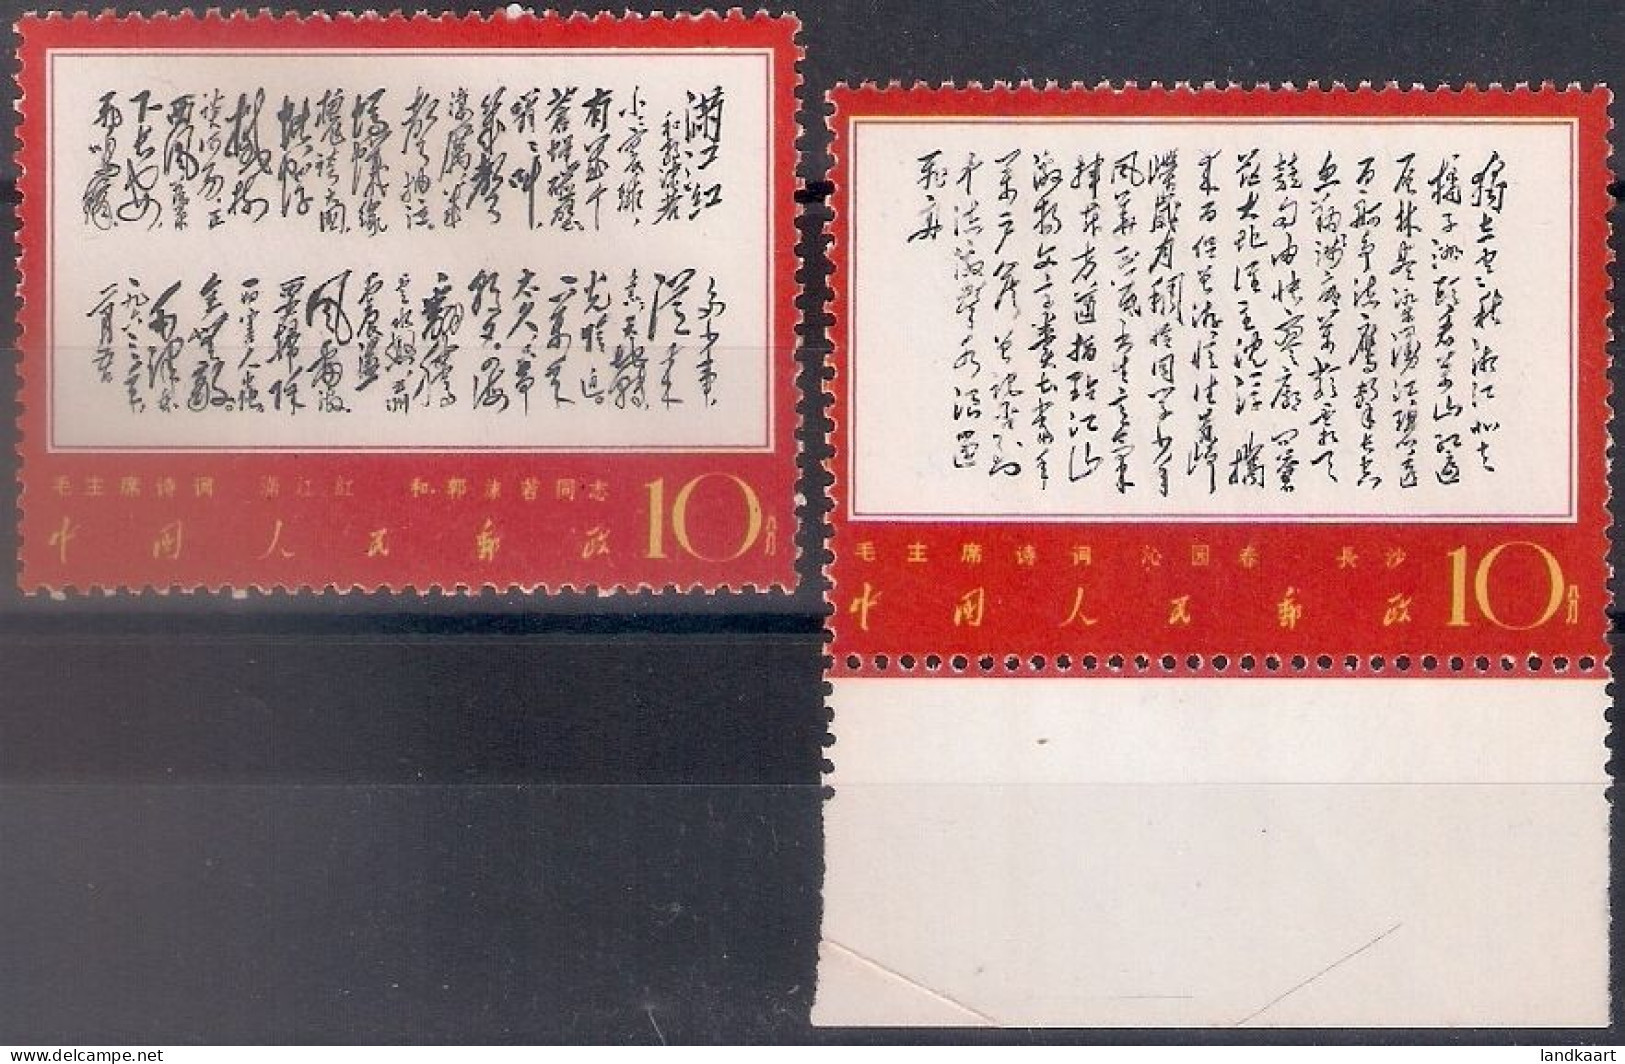 满江红
和郭沫若
小小寰球，
有几个
苍蝇碰壁。
嗡嗡叫，
几声
凄厉，几
声抽泣。
蚂蚁缘
槐夸大国，
蚍蜉
撼树
谈何易。正
西风落叶
下长安，
飞鸣镝。
多少事，
从来
急；天地转，
光阴迫。
一万年
太久，只争
朝夕。四海
翻腾
云水怒，五洲
震荡
风雷激。
要扫除
一切害人虫，
全无敌。
毛泽东
一九六三年
一月五日
毛主席诗词 满江红 和郭沫若同志
中国人民邮政 10分
独立寒秋湘江北去
橘子洲头看万山红遍
层林尽染漫江碧透
百舸争流鹰击长空
鱼翔浅底万类霜天
竞自由怅寥廓问苍
茫大地谁主沉浮携
来百侣曾游忆往昔峥
嵘岁月稠恰同学少年
风华正茂书生意气
挥斥方遒指点江山
激扬文字粪土当年
万户侯曾记否到
中流击水浪遏
飞舟
毛主席诗词 沁园春 長沙
中国人民邮政 10分
delcampe.net
landkaart